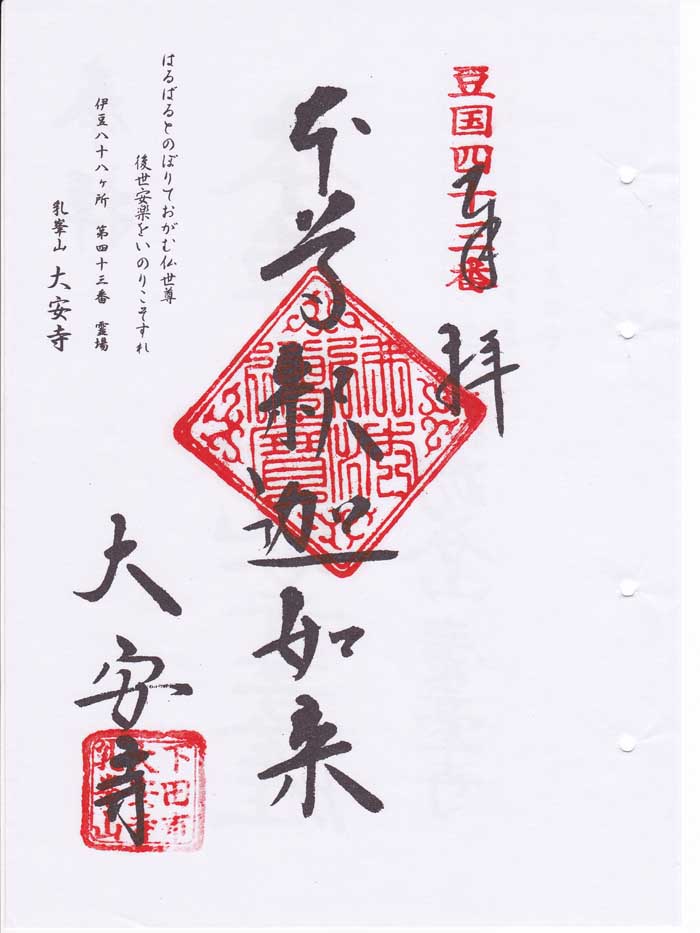 豆国四十三番
奉拝
本尊釈迦如来
佛法僧寶
はるばるとのぼりておがむ仏世尊
後世安楽をいのりこそすれ
伊豆八十八ヶ所 第四十三番 霊場
乳峯山 大安寺
大安寺
下田市
大安寺
乳峯山